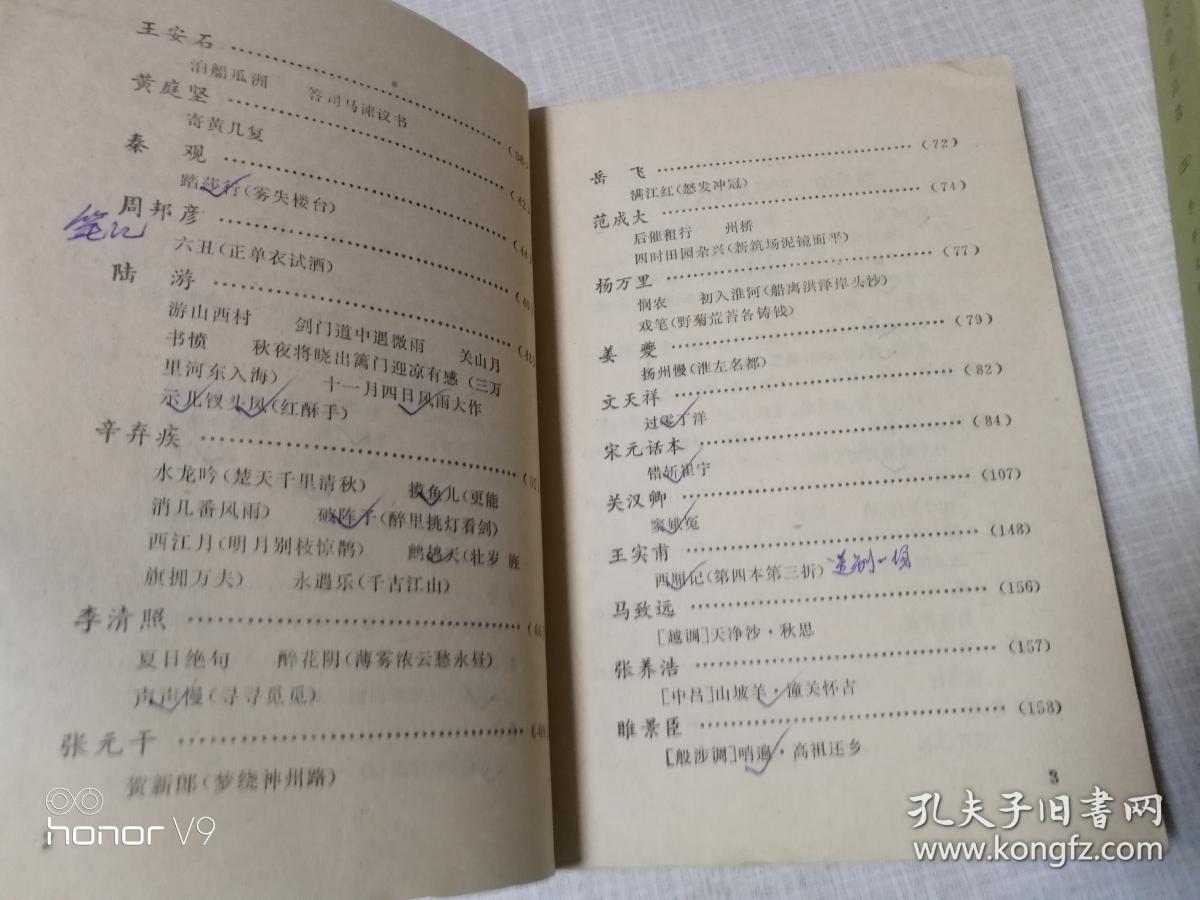 王安石
泊船瓜洲 答司马谏议书
黄庭坚 (38)
寄黄几复
秦 观 (42)
踏莎行(雾失楼台)
周邦彦 (44)
笔记
六丑(正单衣试酒)
陆 游
游山西村 剑门道中遇微雨 关山月
书愤 秋夜将晓出篱门迎凉有感(三万
里河东入海) 十一月四日风雨大作
示儿 钗头凤(红酥手)
辛弃疾
水龙吟(楚天千里清秋) 摸鱼儿(更能
消几番风雨) 破阵子(醉里挑灯看剑)
西江月(明月别枝惊鹊) 鹧鸪天(壮岁旌
旗拥万夫) 永遇乐(千古江山)
李清照
夏日绝句 醉花阴(薄雾浓云愁永昼)
声声慢(寻寻觅觅)
张元干
贺新郎(梦绕神州路)
岳 飞 (72)
满江红(怒发冲冠)
范成大 (74)
后催租行 州桥
四时田园杂兴(新筑场泥镜面平)
杨万里 (77)
悯农 初入淮河(船离洪泽岸头沙)
戏笔(野菊荒苔各铸钱)
姜 夔 (79)
扬州慢(淮左名都)
文天祥 (82)
过零丁洋
宋元话本 (84)
错斩崔宁
关汉卿 (107)
窦娥冤
王实甫 (148)
西厢记(第四本第三折)
马致远 (156)
[越调]天净沙·秋思
张养浩 (157)
[中吕]山坡羊·潼关怀古
睢景臣 (158)
[般涉调]哨遍·高祖还乡
3
honor V9
孔夫子旧书网
www.kongfz.com